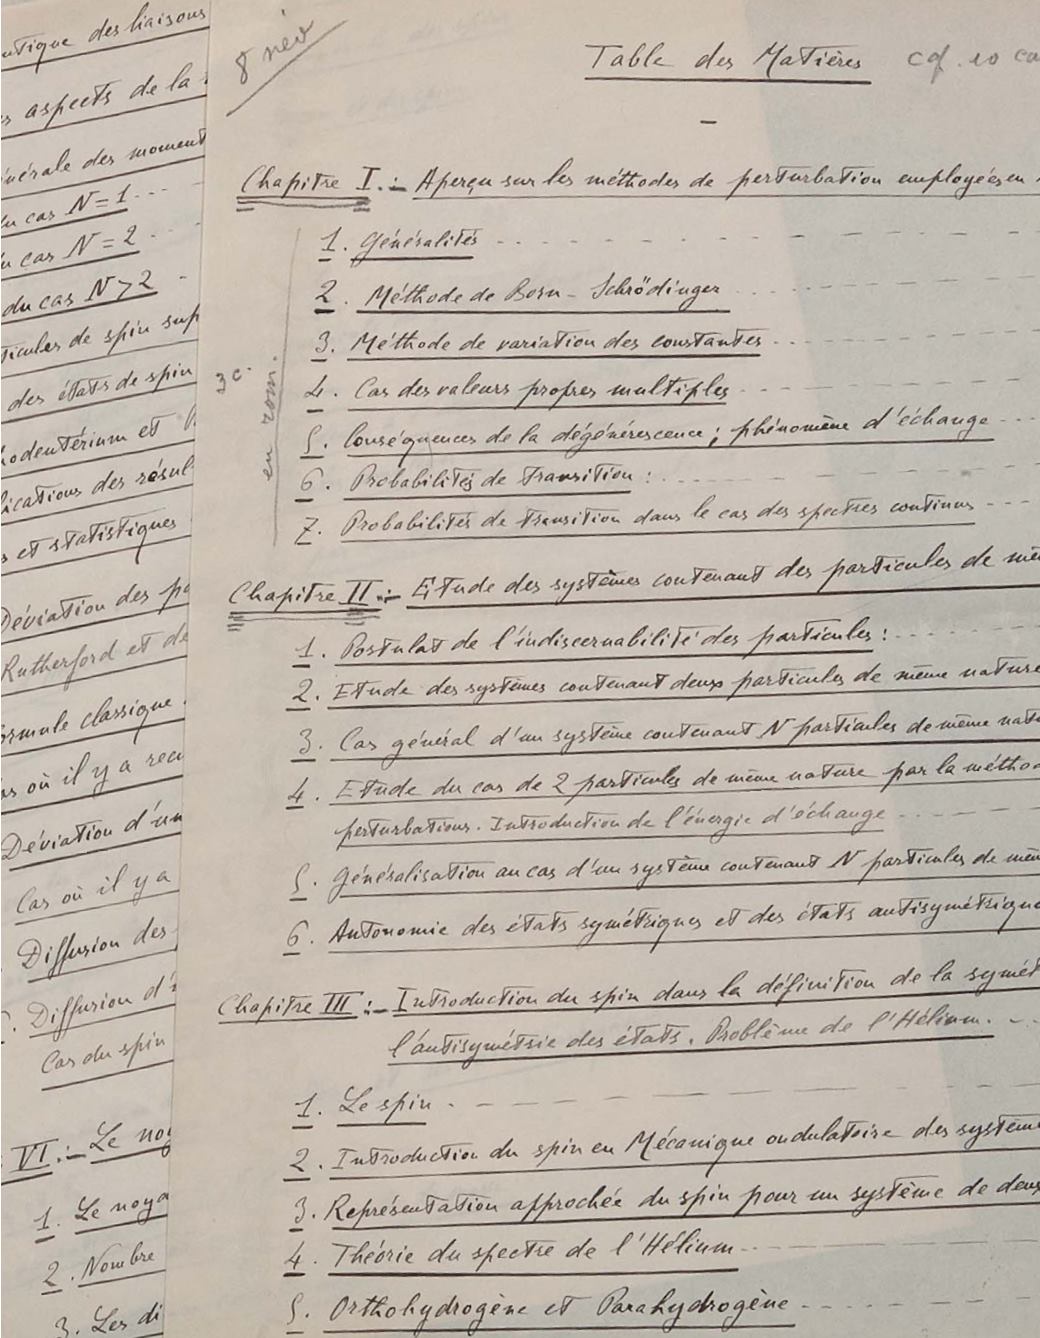 utique des liaisons
s aspects de la
nérale des moment
du cas N=1
u cas N=2
du cas N>2
ticules de spin sup
des états de spin
hodeutérium et
lications des résul
s et statistiques
Déviation des pa
Rutherford et de
ormule classique
as où il y a recu
Déviation d'un
Cas où il y a
Diffusion des
Diffusion d'
Cas du spin
VI :- Le noy
1. Le noya
2. Nombre
3. Les di
8 név
Table des Matières
cq. 10 ca
Chapitre I :- Aperçu sur les méthodes de perturbation employées en
3 c.
en rom.
1. Généralités
2. Méthode de Born-Schrödinger
3. Méthode de variation des constantes
4. Cas des valeurs propres multiples
5. Conséquences de la dégénérescence ; phénomène d'échange
6. Probabilités de transition :
7. Probabilités de transition dans le cas des spectres continus
Chapitre II :- Etude des systèmes contenant des particules de mê
1. Postulat de l'indiscernabilité des particules :
2. Etude des systèmes contenant deux particules de même nature
3. Cas général d'un système contenant N particules de même natu
4. Etude du cas de 2 particules de même nature par la métho
perturbations. Introduction de l'énergie d'échange
5. Généralisation au cas d'un système contenant N particules de mêm
6. Autonomie des états symétriques et des états antisymétrique
Chapitre III :- Introduction du spin dans la définition de la symét
l'antisymétrie des états. Problème de l'Hélium.
1. Le spin
2. Introduction du spin en Mécanique ondulatoire des système
3. Représentation approchée du spin pour un système de deux
4. Théorie du spectre de l'Hélium
5. Orthohydrogène et Parahydrogène